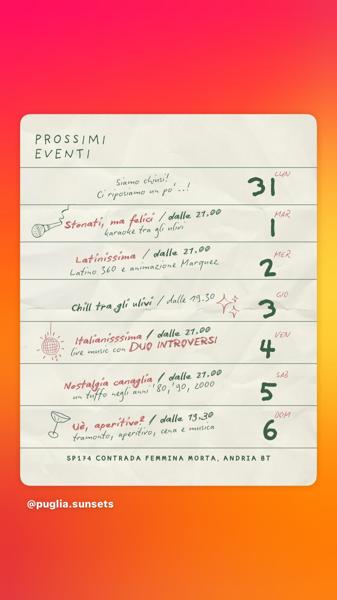 PROSSIMI
EVENTI
Siamo chiusi!
Ci riposiamo un po'..!
LUN
31
Stonati, ma felici / dalle 21.00
karaoke tra gli ulivi
MAR
1
Latinissima / dalle 21.00
Latino 360 e animazione Marquez
MER
2
Chill tra gli ulivi / dalle 19.30
GIO
3
Italianisssima / dalle 21.00
live music con DUO INTROVERSI
VEN
4
Nostalgia canaglia / dalle 21.00
un tuffo negli anni '80, '90, 2000
SAB
5
Uè, aperitivo? / dalle 19.30
tramonto, aperitivo, cena e musica
DOM
6
SP174 CONTRADA FEMMINA MORTA, ANDRIA BT
@puglia.sunsets